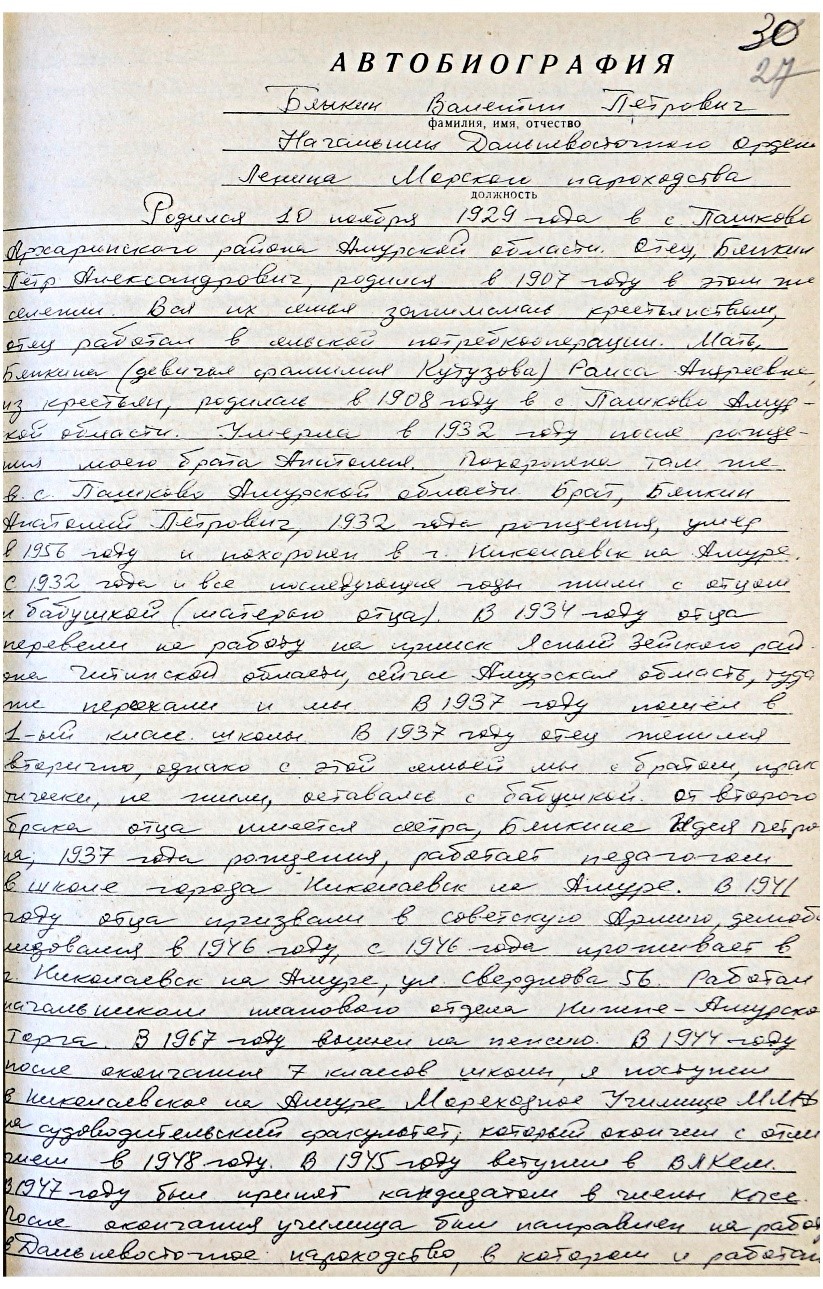 30
27
АВТОБИОГРАФИЯ
Бянкин Валентин Петрович
фамилия, имя, отчество
Начальник Дальневосточного ордена
Ленина Морского пароходства
должность
Родился 10 ноября 1929 года в с. Пашково
Архаринского района Амурской области. Отец, Бянкин
Пётр Александрович, родился в 1907 году в этом же
селении. Вся их семья занималась крестьянством,
отец работал в сельской потребкооперации. Мать,
Бянкина (девичья фамилия Кутузова) Раиса Андреевна,
из крестьян, родилась в 1908 году в с Пашково Амур-
кой области. Умерла в 1932 году после рожде-
ния моего брата Анатолия. Похоронена там же
в с. Пашково Амурской области. Брат, Бянкин
Анатолий Петрович, 1932 года рождения, умер
в 1956 году и похоронен в г. Николаевск на Амуре.
С 1932 года и все последующие годы жили с отцом
и бабушкой (матерью отца). В 1934 году отца
перевели на работу на прииск Ясный Зейского рай-
она Читинской области, сейчас Амурская область, туда
же переехали и мы. В 1937 году пошёл в
1-ый класс школы. В 1937 году отец женился
вторично, однако с этой семьей мы с братом, прак
тически, не жили, оставаясь с бабушкой. От второго
брака отца имеется сестра, Бянкина Петро
на, 1937 года рождения, работает педагогом
в школе города Николаевск на Амуре. В 1941
году отца призвали в советскую Армию, демоб
лизовался в 1946 году, с 1946 года проживает в
г. Николаевск на Амуре, ул. Свердлова 56. Работал
начальником планового отдела Нижне-Амурско
Торга. В 1967 году вышел на пенсию. В 1944 году
после окончания 7 классов школы, я поступил
в Николаевское на Амуре Мореходное Училище ММФ
на судоводительский факультет, который окончил с отли
чием в 1948 году. В 1945 году вступил в ВЛКСМ.
В 1947 году был принят кандидатом в члены КПСС.
После окончания училища был направлен на работ
в Дальневосточное пароходство, в котором и работаю